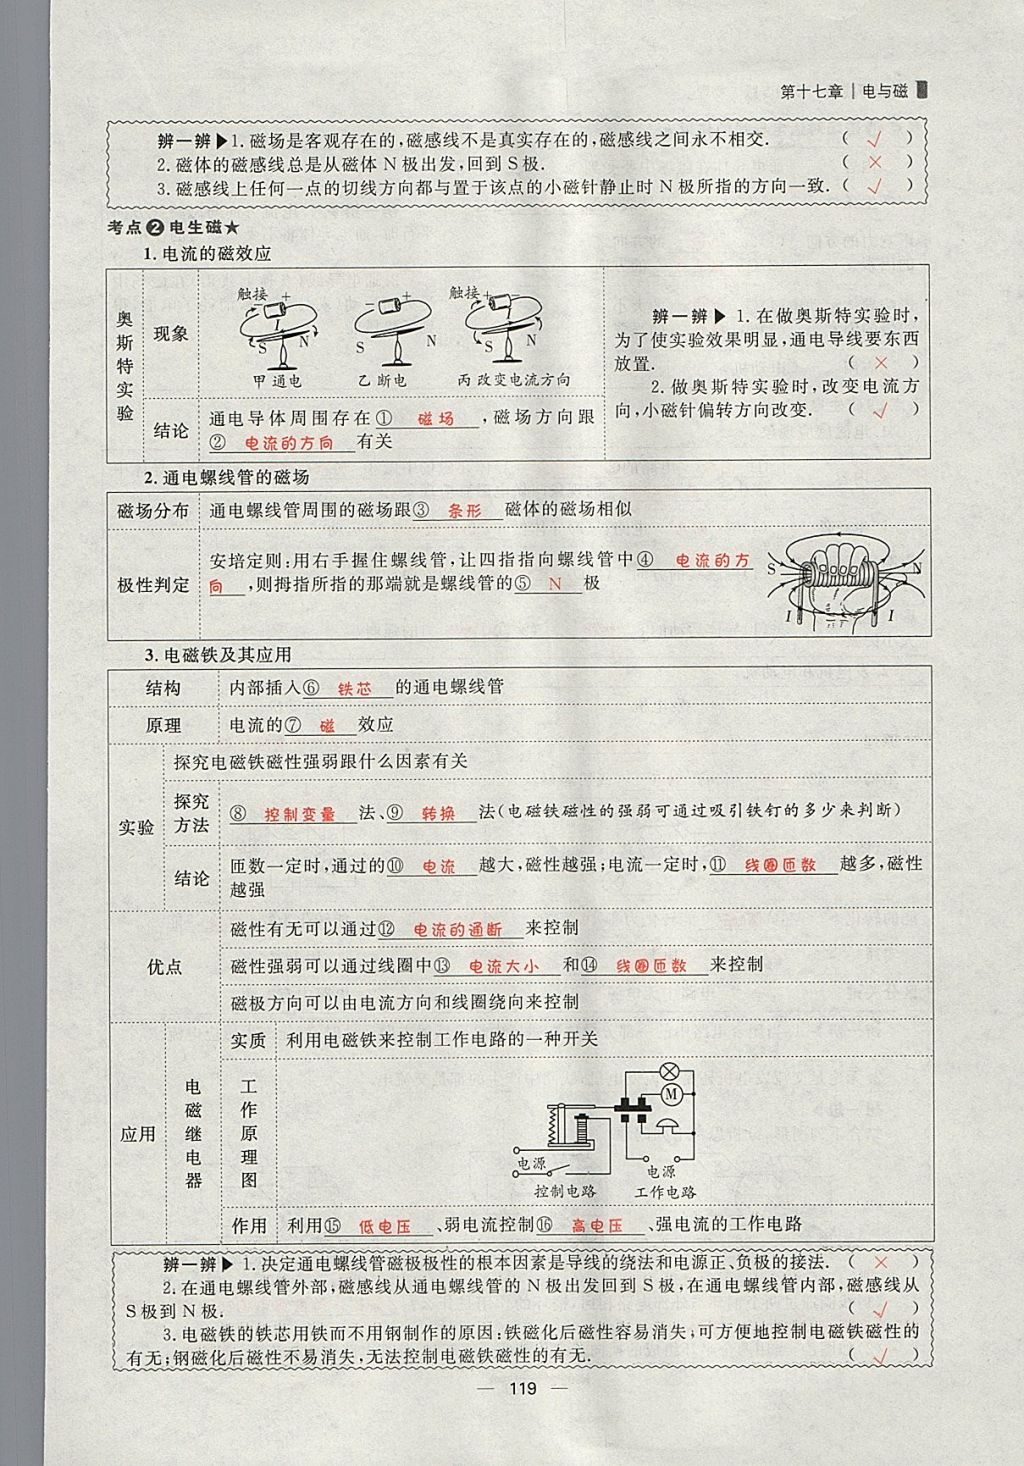 第十七章 | 电与磁
辨一辨▶1. 磁场是客观存在的,磁感线不是真实存在的,磁感线之间永不相交. ( √ )
2. 磁体的磁感线总是从磁体 N 极出发,回到 S 极. ( × )
3. 磁感线上任何一点的切线方向都与置于该点的小磁针静止时 N 极所指的方向一致. ( √ )
考点❷ 电生磁★
1. 电流的磁效应
奥斯特实验
现象
触接 − + I S N
甲 通电
− + S N
乙 断电
触接 + − S N
丙 改变电流方向
结论
通电导体周围存在① 磁场 ,磁场方向跟
② 电流的方向 有关
辨一辨▶ 1. 在做奥斯特实验时,
为了使实验效果明显,通电导线要东西
放置. ( × )
2. 做奥斯特实验时,改变电流方
向,小磁针偏转方向改变. ( √ )
2. 通电螺线管的磁场
磁场分布
通电螺线管周围的磁场跟③ 条形 磁体的磁场相似
极性判定
安培定则:用右手握住螺线管,让四指指向螺线管中④ 电流的方
向 ,则拇指所指的那端就是螺线管的⑤ N 极
S N
I I
3. 电磁铁及其应用
结构
内部插入⑥ 铁芯 的通电螺线管
原理
电流的⑦ 磁 效应
实验
探究电磁铁磁性强弱跟什么因素有关
探究
方法
⑧ 控制变量 法、⑨ 转换 法(电磁铁磁性的强弱可通过吸引铁钉的多少来判断)
结论
匝数一定时,通过的⑩ 电流 越大,磁性越强;电流一定时,⑪ 线圈匝数 越多,磁性
越强
优点
磁性有无可以通过⑫ 电流的通断 来控制
磁性强弱可以通过线圈中⑬ 电流大小 和⑭ 线圈匝数 来控制
磁极方向可以由电流方向和线圈绕向来控制
应用
电磁继电器
实质
利用电磁铁来控制工作电路的一种开关
工作原理图
M
电源
电源
控制电路
工作电路
作用
利用⑮ 低电压 、弱电流控制⑯ 高电压 、强电流的工作电路
辨一辨▶ 1. 决定通电螺线管磁极极性的根本因素是导线的绕法和电源正、负极的接法. ( × )
2. 在通电螺线管外部,磁感线从通电螺线管的 N 极出发回到 S 极,在通电螺线管内部,磁感线从
S 极到 N 极. ( √ )
3. 电磁铁的铁芯用铁而不用钢制作的原因:铁磁化后磁性容易消失,可方便地控制电磁铁磁性的
有无;钢磁化后磁性不易消失,无法控制电磁铁磁性的有无. ( √ )
— 119 —